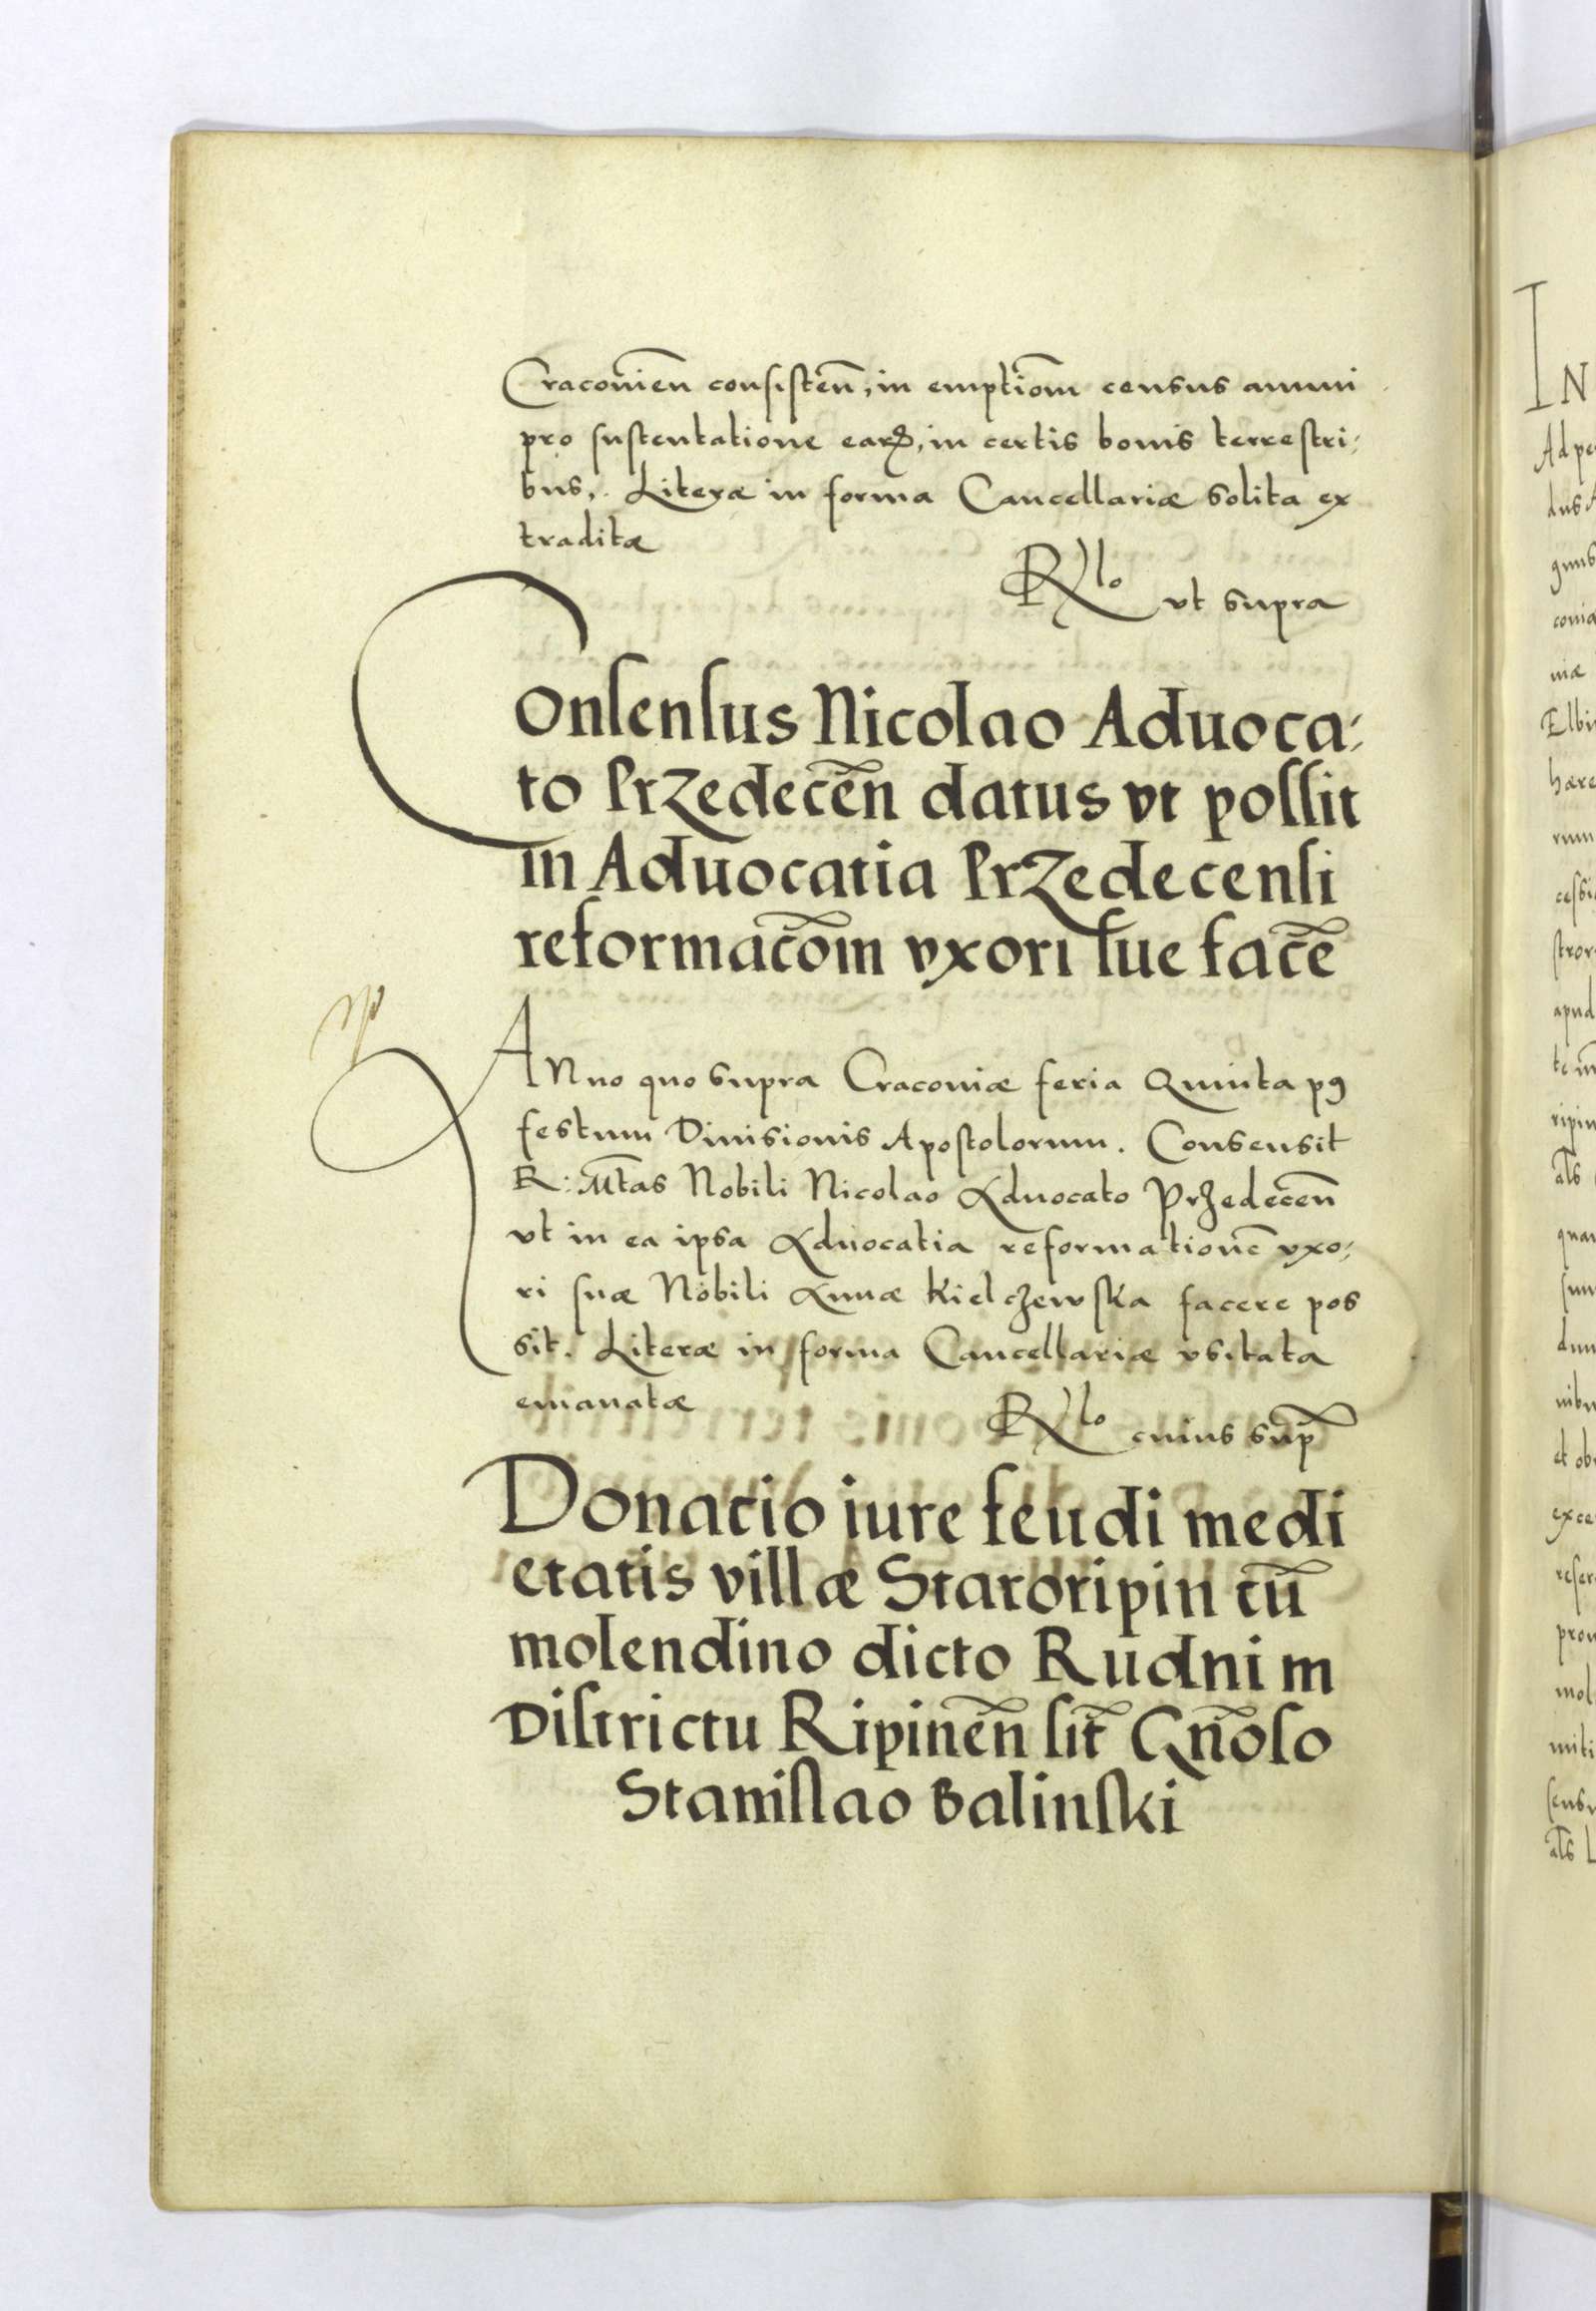 Cracovien̄ consisten̄, in emptiom̄ census annui
pro sustentatione earꝝ, in certis bonis terrestri,
bus,. Literæ in forma Cancellariæ solita ex
traditæ
Rlo ut supra
Consensus Nicolao Aduoca,
to Przedecēn datus vt possit
in Aduocatia Przedecensi
reformac̄om vxori sue fac̄e
ANno quo supra Cracoviæ feria Quinta pꝰ
festum Divisionis Apostolorum. Consensit
R: M̄tas Nobili Nicolao Aduocato Przedecen̄
vt in ea ipsa Aduocatia reformationē vxo,
ri suæ Nobili Annæ Kielczewska facere pos
sit. Literæ in forma Cancellariæ vsitata
emanatæ
Rlo cuius sup̄
Donatio iure feudi medi
etatis villæ Staroripin cū
molendino dicto Rudni in
Districtu Ripinēn sit̄ Gn̄oso
Stanislao Balinski
IN
Ad pe
dus A
coniæ
niæ
Elbi
hære
rum
cessi
stror
apud
ripin
als
qua
sun
dum
et ob
exce
reser
pro
mol
miti
als L